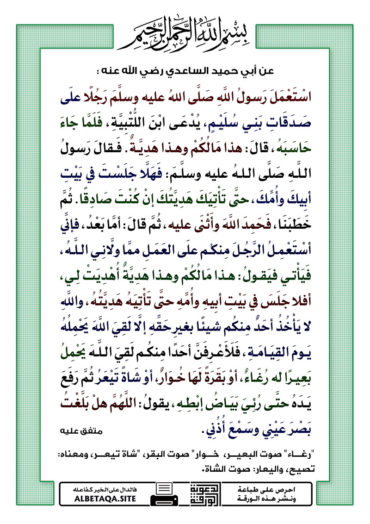 بسم الله الرحمن الرحيم
عن أبي حميد الساعدي رضي الله عنه :
اسْتَعْمَلَ رَسولُ اللَّهِ صَلَّى اللهُ عليه وسلَّمَ رَجُلًا علَى
صَدَقَاتِ بَنِي سُلَيْمٍ، يُدْعَى ابْنَ اللُّتْبِيَّةِ، فَلَمَّا جَاءَ
حَاسَبَهُ، قالَ: هذا مَالُكُمْ وهذا هَدِيَّةٌ. فَقالَ رَسولُ
اللَّهِ صَلَّى اللهُ عليه وسلَّمَ: فَهَلَّا جَلَسْتَ في بَيْتِ
أبِيكَ وأُمِّكَ، حتَّى تَأْتِيَكَ هَدِيَّتُكَ إنْ كُنْتَ صَادِقًا. ثُمَّ
خَطَبَنَا، فَحَمِدَ اللَّهَ وأَثْنَى عليه، ثُمَّ قالَ: أمَّا بَعْدُ، فإنِّي
أسْتَعْمِلُ الرَّجُلَ مِنكُم علَى العَمَلِ ممَّا ولَّانِي اللَّهُ،
فَيَأْتي فيَقولُ: هذا مَالُكُمْ وهذا هَدِيَّةٌ أُهْدِيَتْ لِي،
أفلا جَلَسَ في بَيْتِ أبِيهِ وأُمِّهِ حتَّى تَأْتِيَهُ هَدِيَّتُهُ، واللَّهِ
لا يَأْخُذُ أحَدٌ مِنكُم شيئًا بغيرِ حَقِّهِ إلَّا لَقِيَ اللَّهَ يَحْمِلُهُ
يَومَ القِيَامَةِ، فَلَأَعْرِفَنَّ أحَدًا مِنكُم لَقِيَ اللَّهَ يَحْمِلُ
بَعِيرًا له رُغَاءٌ، أوْ بَقَرَةً لَهَا خُوَارٌ، أوْ شَاةً تَيْعَرُ ثُمَّ رَفَعَ
يَدَهُ حتَّى رُئِيَ بَيَاضُ إبْطِهِ، يقولُ: اللَّهُمَّ هلْ بَلَّغْتُ
بَصْرَ عَيْنِي وسَمْعَ أُذُنِي.
متفق عليه
"رغـاء" صوت البعيـر، خـوار" صوت البقر، "شاة تيعـر، ومعناه:
تصيح، واليعار: صوت الشاة.
احرص على طباعة
ونشر هذه الورقة
الدعوية
الورقة
فالدال على الخير كفاعله
ALBETAQA.SITE